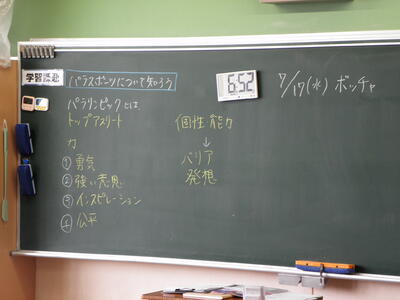 学習課題
パラスポーツについて知ろう
パラリンピックとは、
トップアスリート
力
①勇気
②強い意思
③インスピレーション
④公平
個性 能力
↓
バリア
発想
6:52
7/17(水) ボッチャ